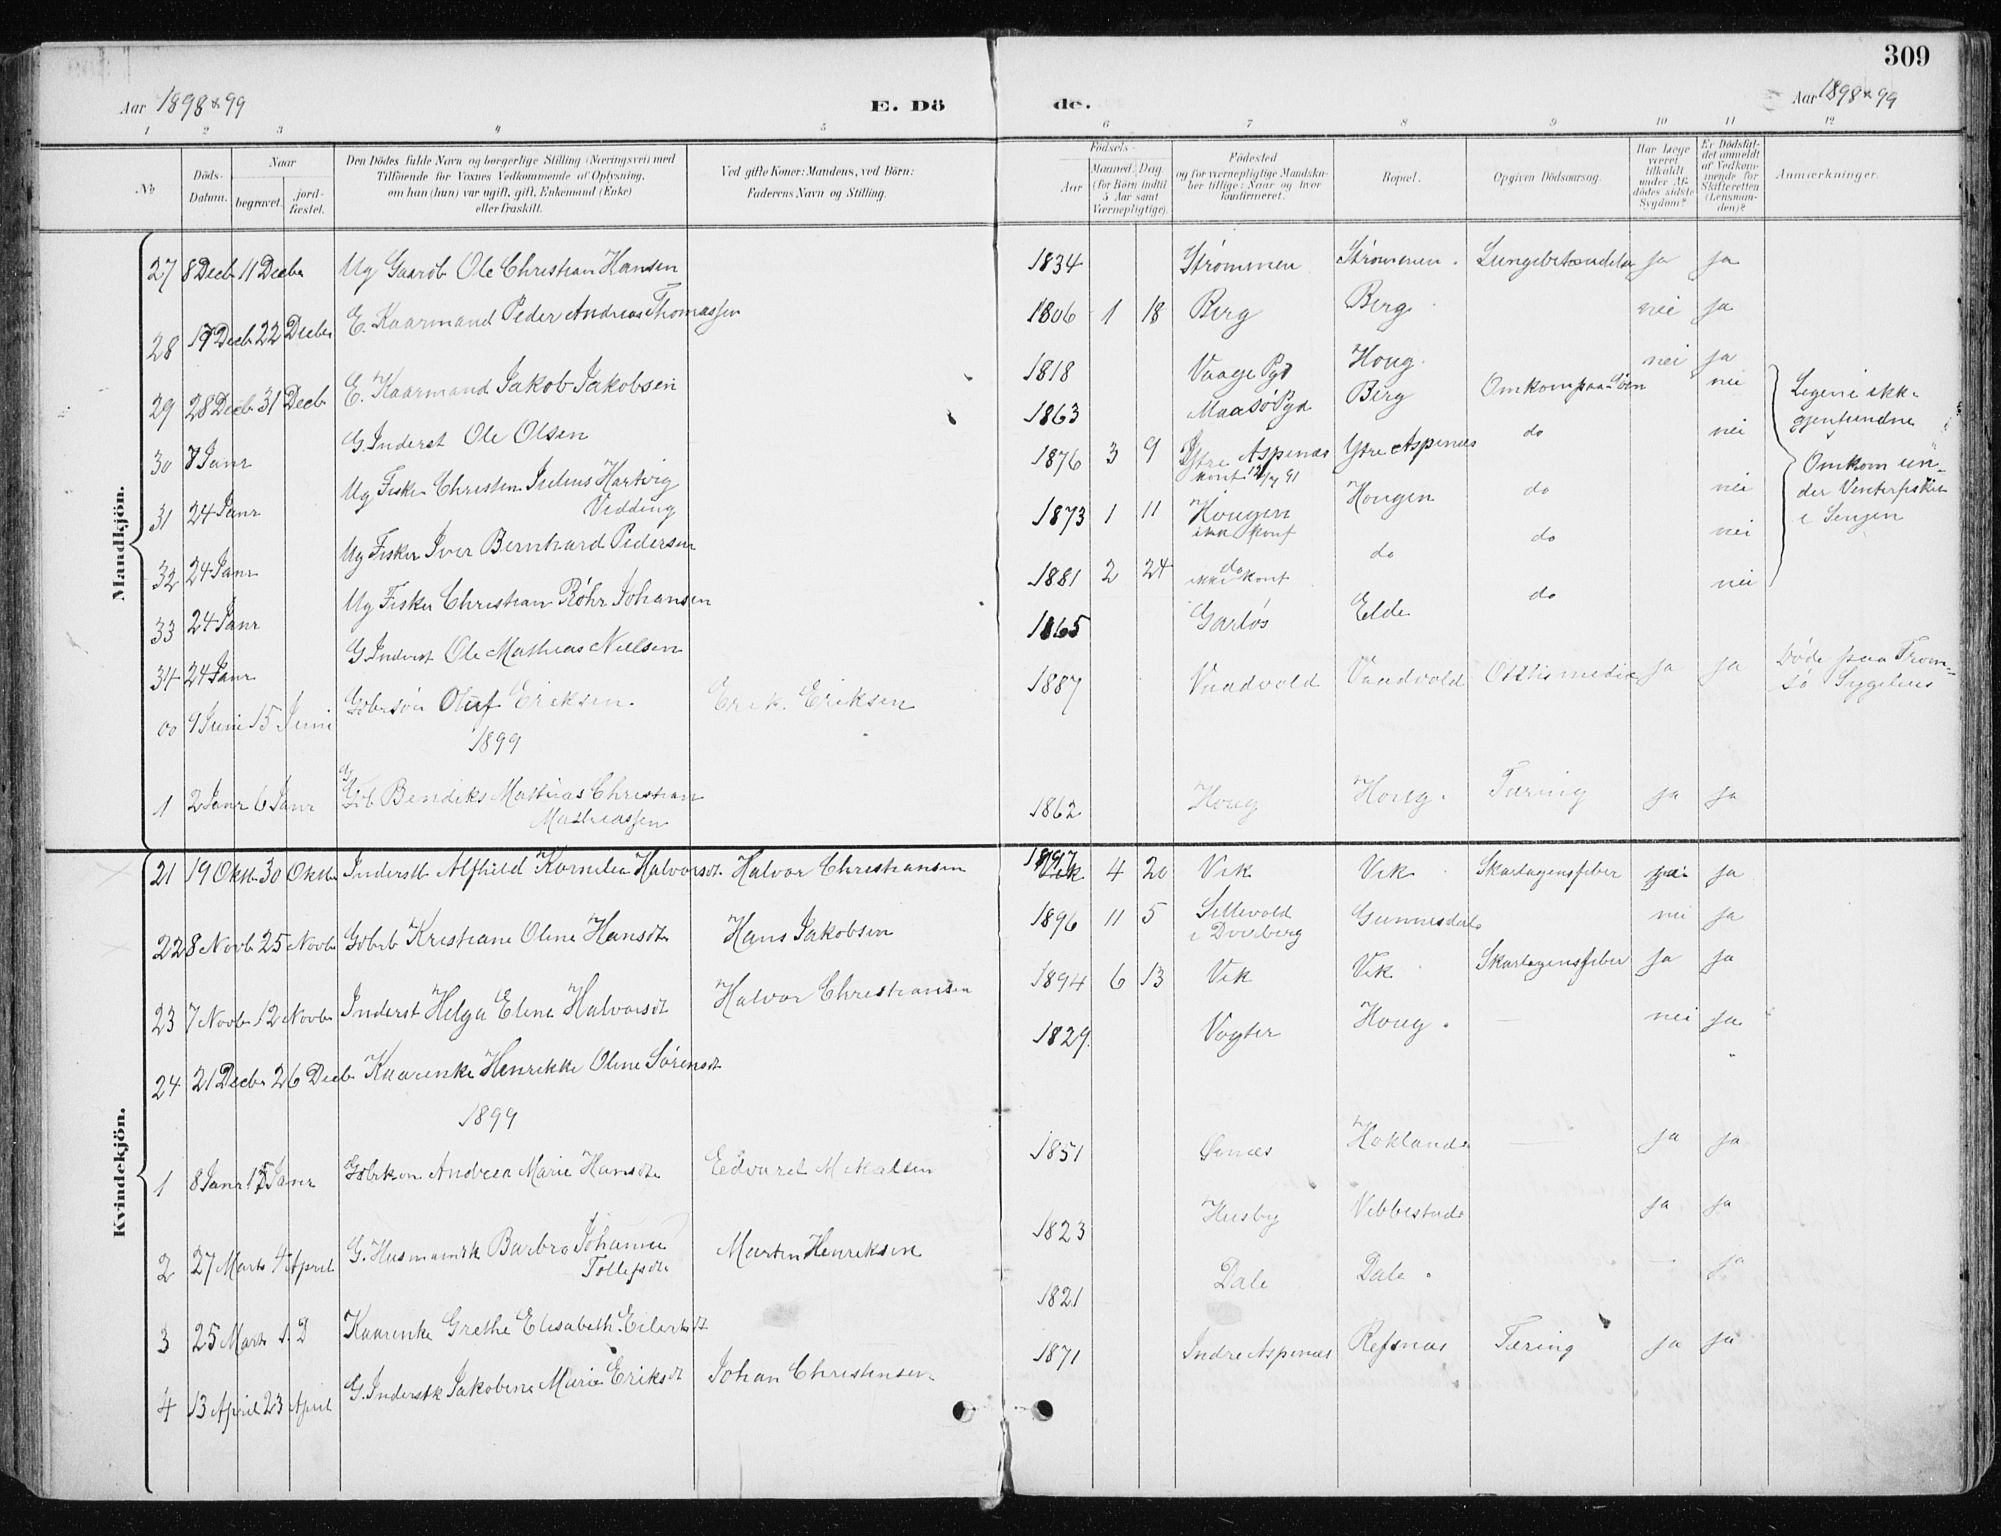 309
Aar 1898 & 99
E. Dö
de.
Aar 1898 & 99
1 2 3 4 5 6 7 8 9 10 11 12
No
Döds-Datum.
Naar
begravet.
jord-fæstet.
Den Dödes fulde Navn og borgerlige Stilling (Næringsvei) med
Tilföiende for Voxnes Vedkommende af Oplysning,
om han (hun) var ugift, gift, Enkemand (Enke)
eller fraskilt.
Ved gifte Koner: Mandens, ved Börn:
Faderens Navn og Stilling.
Födsels-
Aar
Maaned Dag
(for Börn indtil
5 Aar samt
Værnepligtige).
Födested
og for værnepligtige Mandska-
ber tillige: Naar og hvor
konfirmeret.
Bopæl.
Opgiven Dödsaarsag.
Har Læge
været
tilkaldt
under Af-
dödes sidste
Sygdom?
Er Dödsfal-
det anmeldt
af Vedkom-
mende for
Skifteretten
(Lensman-
den)?
Anmærkninger.
Mandkjön.
27 8 Decb 11 Decbr Ug Gaarb Ole Christian Hansen 1834 Strømmen Strømmen. Lungebetændelse ja ja
28 17 Decb 22 Decbr E. Kaarmand Peder Andreas Thomassen 1806 1 18 Berg Berg nei ja
29 28 Decb 31 Decb E. Kaarmand Jakob Jakobsen 1818 Vaage Pgd Houg. nei ja
30 8 Janr G. Inderst Ole Olsen 1863 Maasø Pgd Berg Omkom paa Søen nei
31 24 Janr Ug Fisker Christen Julius Hartvig
Vedding 1876 3 9 Ytre Aspenæs Ytre Aspenæs do nei
konf 91
32 24 Janr Ug Fisker Iver Bernhard Pedersen 1873 1 11 Hougen Hougen do nei
ikke konf
33 24 Janr Ug Fisker Christian Röhr Johansen 1881 2 24 do do do nei
ikke konf
34 24 Janr G Inderst Ole Mathias Nielsen 1865 Garløs Elde do nei
Ligene ikke
gjenfundne
Omkom un-
der Vinterfisket
i Senjen
00 9 Juni 15 Juni Gbrsøn Oluf Eriksen. Erik Eriksen 1887 Vaadvold Vaadvold ja ja Døde paa Trom-
sø Sygehus
1899
1 2 Janr 6 Janr Gb Bendiks Mathias Christian
Mathiassen 1862 Houg Houg. Tæring ja ja
Kvindekjön.
21 19 Okt 30 Oktbr Inderstb Alfhild Kornelia Halvorsdt Halvor Christiansen 1897 4 20 Vik Vik Skarlagensfeber ja
22 8 Novb 25 Novb Gbrb Kristiane Oline Hansdt Hans Jakobsen 1896 11 5 Sillevold
i Dverberg Gunnesdal nei ja
23 7 Novb 12 Novbr Inderst Helga Eline Halvorsdt Halvor Christiansen 1894 6 13 Vik Vik Skarlagensfeber ja ja
24 21 Decbr 26 Decb Kaarenke Henrikke Oline Sørensdt 1829. Vogter Houg. — nei ja
1899
1 8 Janr 15 Janr Gbrkon Andrea Marie Hansdt Edvard Mikalsen 1851 Øsnæs Hokland — ja ja
2 27 Marts 4 April G. Husmandsk Barbro Johanna
Tollefsdt Martin Henriksen 1823 Husby Vebbestad ja ja
3 25 Marts 1. D Kaarenke Grethe Elisabeth Eilertsdt 1821 Dale Dale. — ja
4 13 April 23 April G. Inderstk Jakobine Marie Eriksdt Johan Christensen 1871 Indre Aspenæs Refsnæs Tæring ja ja